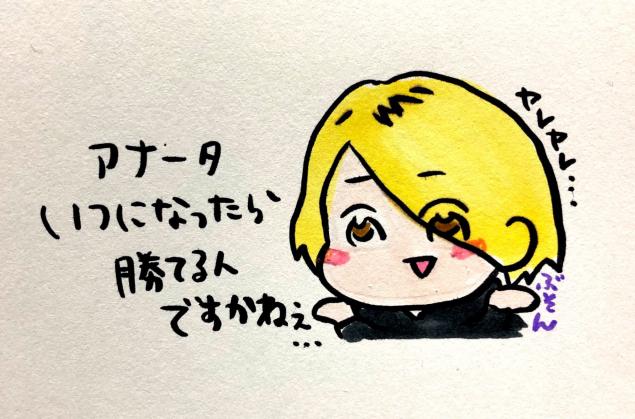 アナータ
いつになったら
勝てる人
ですかねぇ
...
ヤレヤレ...
ぶそん